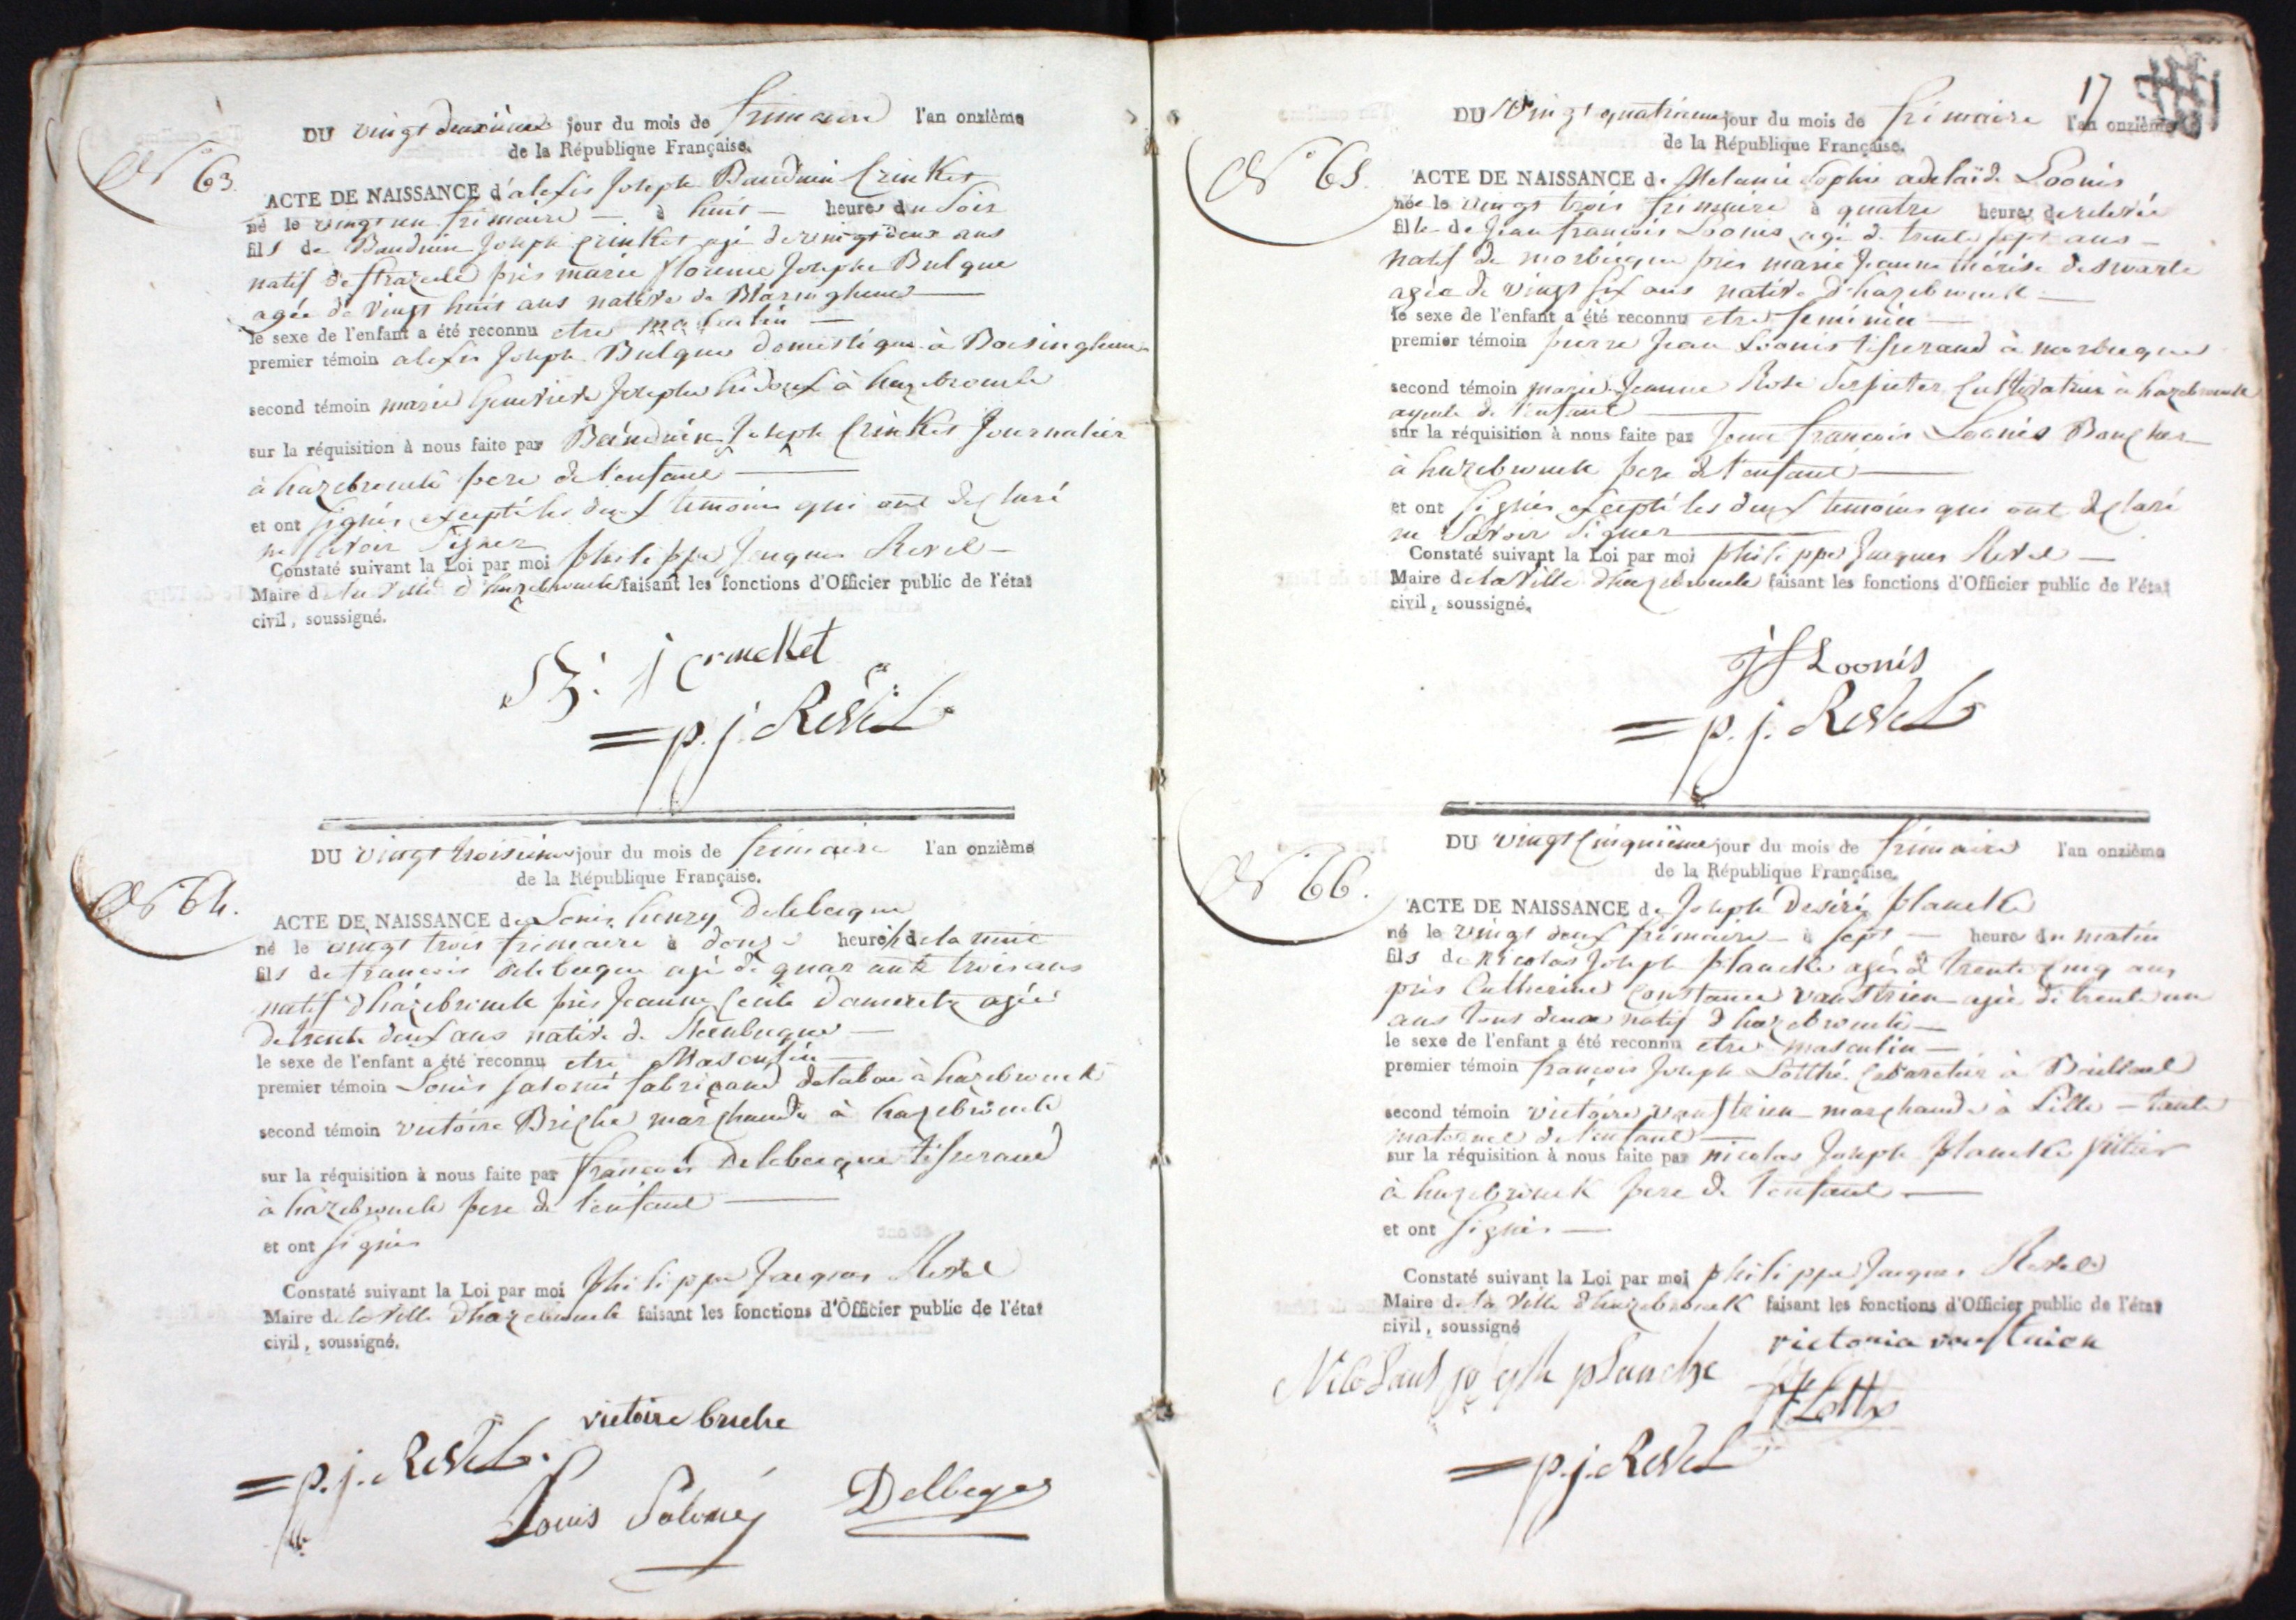 DU vingt deuxieme jour du mois de frimaire l'an onzième
de la République Française.
N° 63.
ACTE DE NAISSANCE d'alexis Joseph Bauduin Crinket
né le vingt un frimaire — à huit — heures du Soir
fils de Bauduin Joseph Crinket agé de vingt deux ans
natif de Strazeele près marie florence Josephe Bulque
agée de vingt huit ans native de Blaringhem —
le sexe de l'enfant a été reconnu etre masculin —
premier témoin alexis Joseph Bulque domestique à Boesinghem
second témoin marie Genevieve Josephe hidoux à hazebrouck
sur la réquisition à nous faite par Bauduin Joseph Crinket Journalier
à hazebrouck pere de l'enfant —
et ont signés excepté les deux temoins qui ont declaré
ne savoir signer
Constaté suivant la Loi par moi philippe Jacques Revel —
Maire de la ville d'hazebrouck faisant les fonctions d'Officier public de l'état
civil, soussigné.
B. j crinckket
p. j. Revel
DU vingt troisieme jour du mois de frimaire l'an onzième
de la République Française.
N° 64.
ACTE DE NAISSANCE de Louis henry Delebecque
né le vingt trois frimaire à douze heures de la nuit
fils de francois delebecque agé de quarante trois ans
natif d'hazebrouck près Jeanne Cecile Dameretz agée
de trente deux ans native de Steenbecque —
le sexe de l'enfant a été reconnu etre Masculin
premier témoin Louis Salomé fabricant de tabac à hazebrouck
second témoin victoire Briche marchande à hazebrouck
sur la réquisition à nous faite par francois Delebecque tisserand
à hazebrouck pere de l'enfant —
et ont signés
Constaté suivant la Loi par moi philippe Jacques Revel
Maire de la ville d'hazebrouck faisant les fonctions d'Officier public de l'état
civil, soussigné.
victoire briche
p. j. Revel
Louis Salomé
Delbeque
17
DU vingt quatrieme jour du mois de frimaire l'an onzième
de la République Française.
N° 65.
ACTE DE NAISSANCE de Melanie Sophie adelaïde Loonis
née le vingt trois frimaire à quatre heures de relevée
fille de Jean francois Loonis agé de trente sept ans —
natif de morbecque près marie Jeanne deswarte
agée de vingt six ans native d'hazebrouck —
le sexe de l'enfant a été reconnu etre feminin —
premier témoin pierre Jean Loonis tisserand à morbecque
second témoin marie Jeanne Rose Cultivatrice à hazebrouck
ayeule de l'enfant —
sur la réquisition à nous faite par Jean francois Loonis Boucher
à hazebrouck pere de l'enfant —
et ont signés excepté les deux temoins qui ont declaré
ne Savoir Signer —
Constaté suivant la Loi par moi philippe Jacques Revel —
Maire de la ville d'hazebrouck faisant les fonctions d'Officier public de l'état
civil, soussigné.
jf Loonis
p. j. Revel
DU vingt Cinquieme jour du mois de frimaire l'an onzième
de la République Française.
N° 66.
ACTE DE NAISSANCE de Joseph Desiré plancke
né le vingt deux frimaire — à sept — heures du matin
fils de nicolas Joseph plancke agé de trente cinq ans
près Catherine Constance vanstrien agée de trente un
ans tous deux natif d'hazebrouck —
le sexe de l'enfant a été reconnu etre masculin —
premier témoin françois Joseph Lotthé Cabaretier à Bailleul
second témoin victoire vanstrien marchande à Lille — tante
maternel de l'enfant —
sur la réquisition à nous faite par nicolas Joseph plancke
à hazebrouck pere de l'enfant —
et ont signés —
Constaté suivant la Loi par moi philippe Jacques Revel
Maire de la ville d'hazebrouck faisant les fonctions d'Officier public de l'état
civil, soussigné
victoria vanstrien
Nicolaus joseph plancke
p. j. Revel